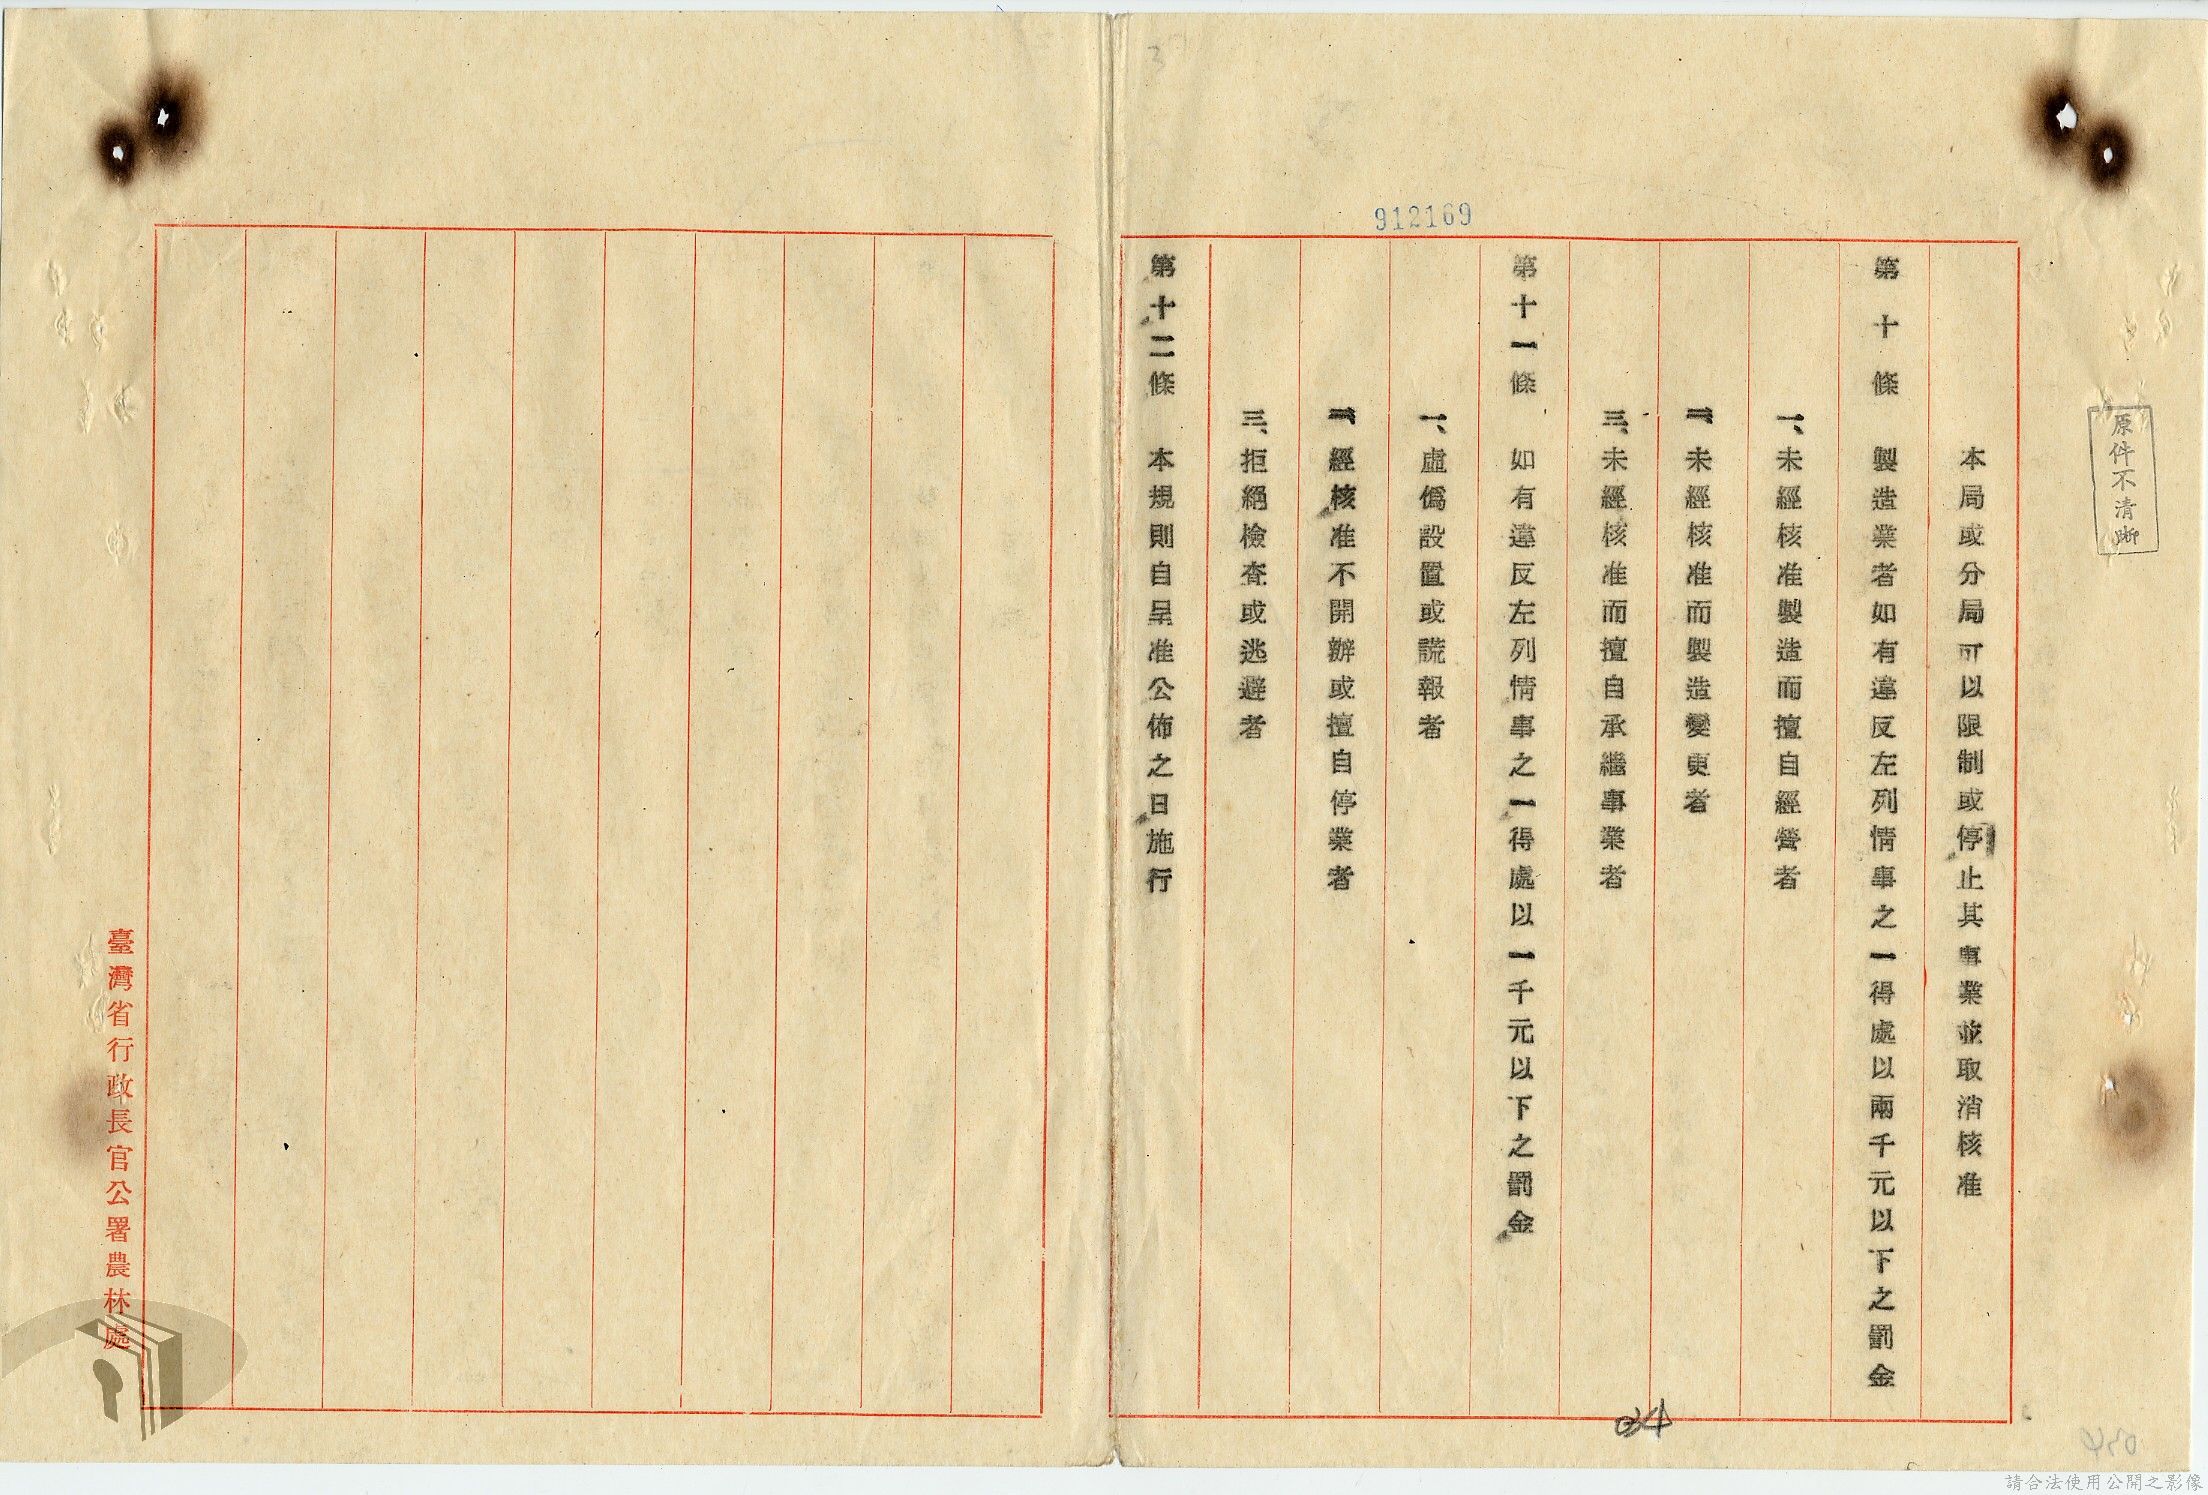 912169
原件不清晰
本局或分局可以限制或停止其事業並取消核准
第十條　製造業者如有違反左列情事之一得處以兩千元以下之罰金
一、未經核准製造而擅自經營者
二、未經核准而製造變更者
三、未經核准而擅自承繼事業者
第十一條　如有違反左列情事之一得處以一千元以下之罰金
一、虛僞設置或謊報者
二、經核准不開辦或擅自停業者
三、拒絕檢查或逃避者
第十二條　本規則自呈准公佈之日施行
臺灣省行政長官公署農林處
請合法使用公開之影像